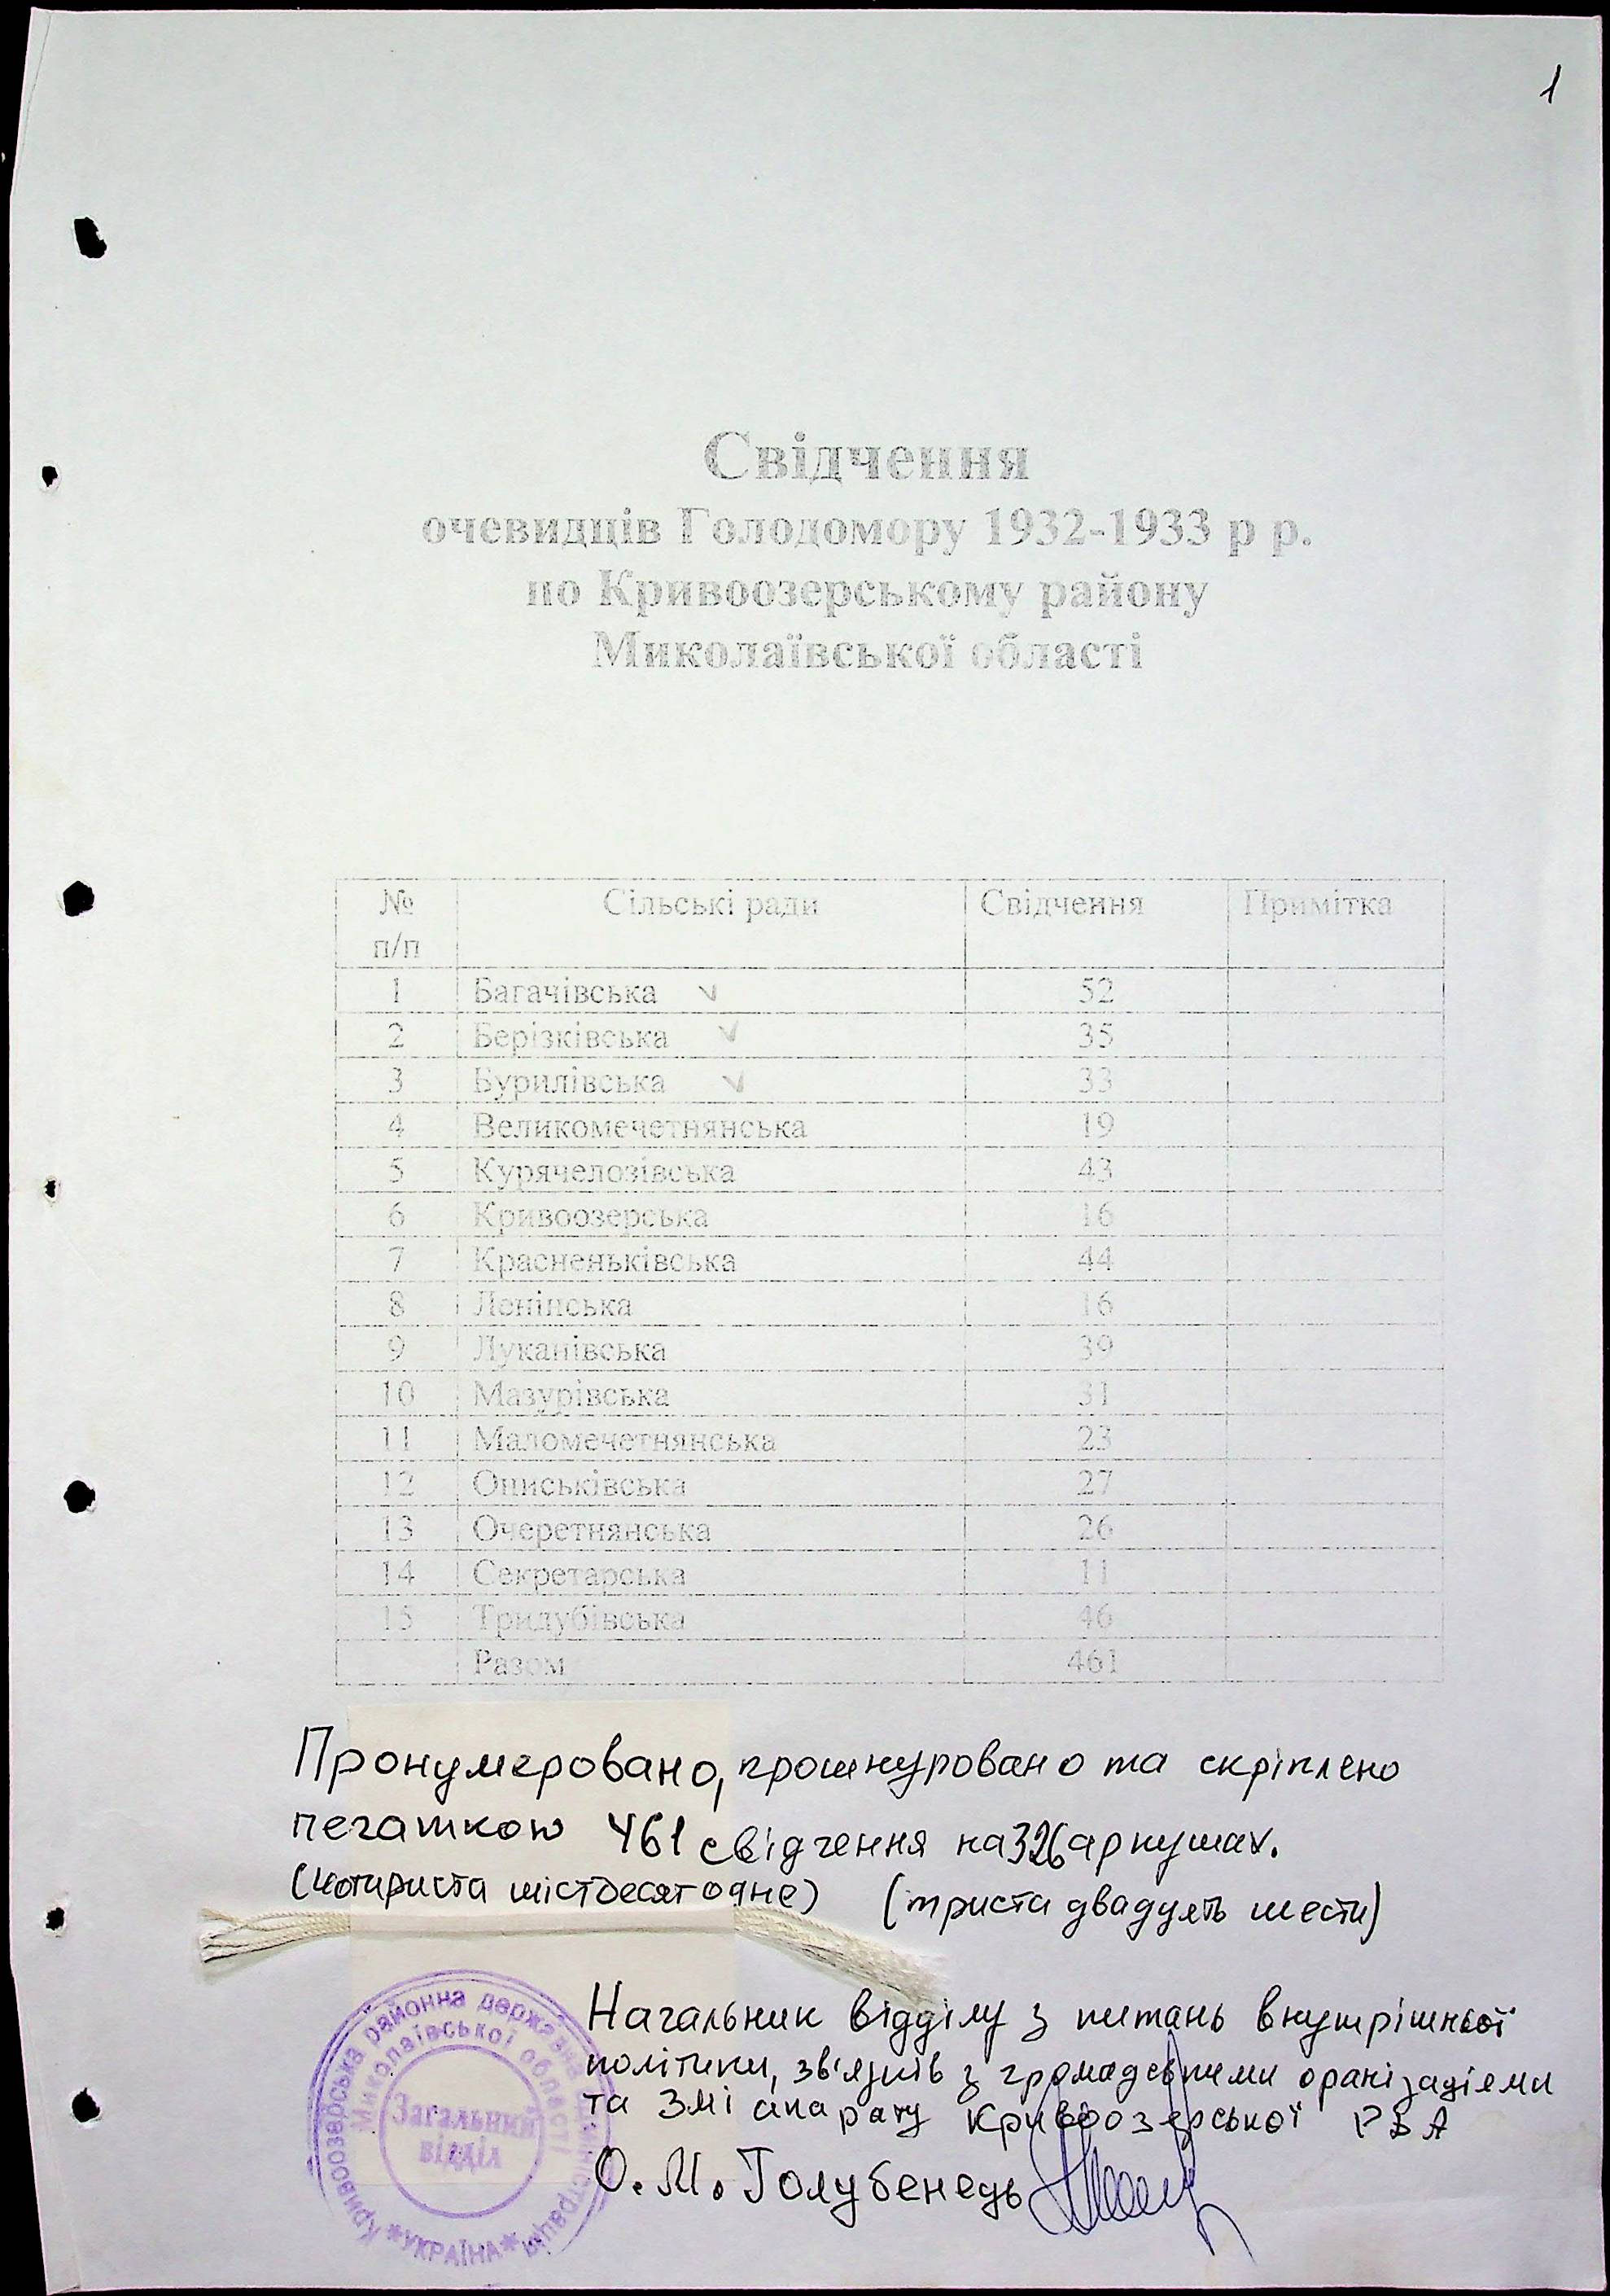 1
Свідчення
очевидців Голодомору 1932-1933 р р.
по Кривоозерському району
Миколаївської області
№ п/п Сільські ради Свідчення Примітка
1 Багачівська 52
2 Берізківська 35
3 Бурилівська 33
4 Великомечетнянська 19
5 Курячелозівська 43
6 Кривоозерська 16
7 Красненьківська 44
8 Ленінська 16
9 Луканівська 39
10 Мазурівська 31
11 Маломечетнянська 23
12 Ониськівська 27
13 Очеретнянська 26
14 Секретарська 11
15 Тридубівська 46
Разом 461
Пронумеровано, прошнуровано та скріплено
печаткою 461 свідчення на 326 аркушах.
(чотириста шістдесят одне) (триста двадцять шести)
Начальник відділу з питань внутрішньої
політики, зв'язків з громадськими оранізаціями
та ЗМІ апарату Кривоозерської РДА
О. М. Голубенець
Кривоозерська районна державна адміністрація
Миколаївської області
Загальний
відділ
*УКРАЇНА*